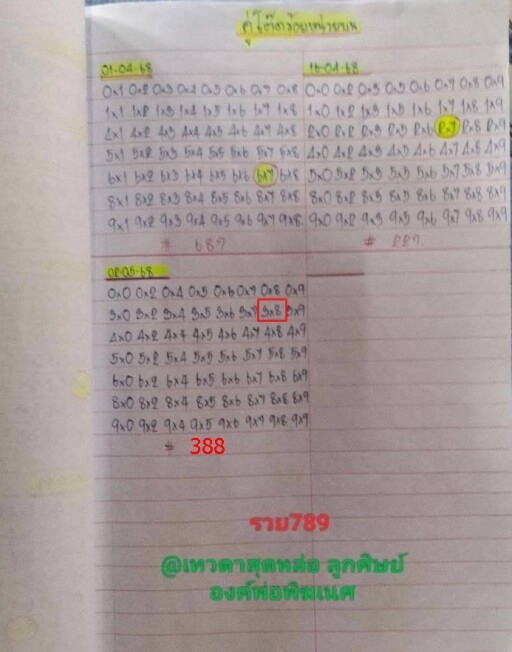 คู่โต๊ดร้อยหน่วยบน
01-04-68
0x1 0x2 0x3 0x4 0x5 0x6 0x7 0x8
1x1 1x2 1x3 1x4 1x5 1x6 1x7 1x8
4x1 4x2 4x3 4x4 4x5 4x6 4x7 4x8
5x1 5x2 5x3 5x4 5x5 5x6 5x7 5x8
6x1 6x2 6x3 6x4 6x5 6x6 6x7 6x8
8x1 8x2 8x3 8x4 8x5 8x6 8x7 8x8
9x1 9x2 9x3 9x4 9x5 9x6 9x7 9x8
# 687
16-04-68
0x0 0x2 0x3 0x5 0x6 0x7 0x8 0x9
1x0 1x2 1x3 1x5 1x6 1x7 1x8 1x9
2x0 2x2 2x3 2x5 2x6 2x7 2x8 2x9
4x0 4x2 4x3 4x5 4x6 4x7 4x8 4x9
5x0 5x2 5x3 5x5 5x6 5x7 5x8 5x9
8x0 8x2 8x3 8x5 8x6 8x7 8x8 8x9
9x0 9x2 9x3 9x5 9x6 9x7 9x8 9x9
# 227
02-05-68
0x0 0x2 0x4 0x5 0x6 0x7 0x8 0x9
3x0 3x2 3x4 3x5 3x6 3x7 3x8 3x9
4x0 4x2 4x4 4x5 4x6 4x7 4x8 4x9
5x0 5x2 5x4 5x5 5x6 5x7 5x8 5x9
6x0 6x2 6x4 6x5 6x6 6x7 6x8 6x9
8x0 8x2 8x4 8x5 8x6 8x7 8x8 8x9
9x0 9x2 9x4 9x5 9x6 9x7 9x8 9x9
# 388
รวม789
@เทวดาสุดหล่อ ลูกศิษย์
องค์พ่อพิฆเนศ